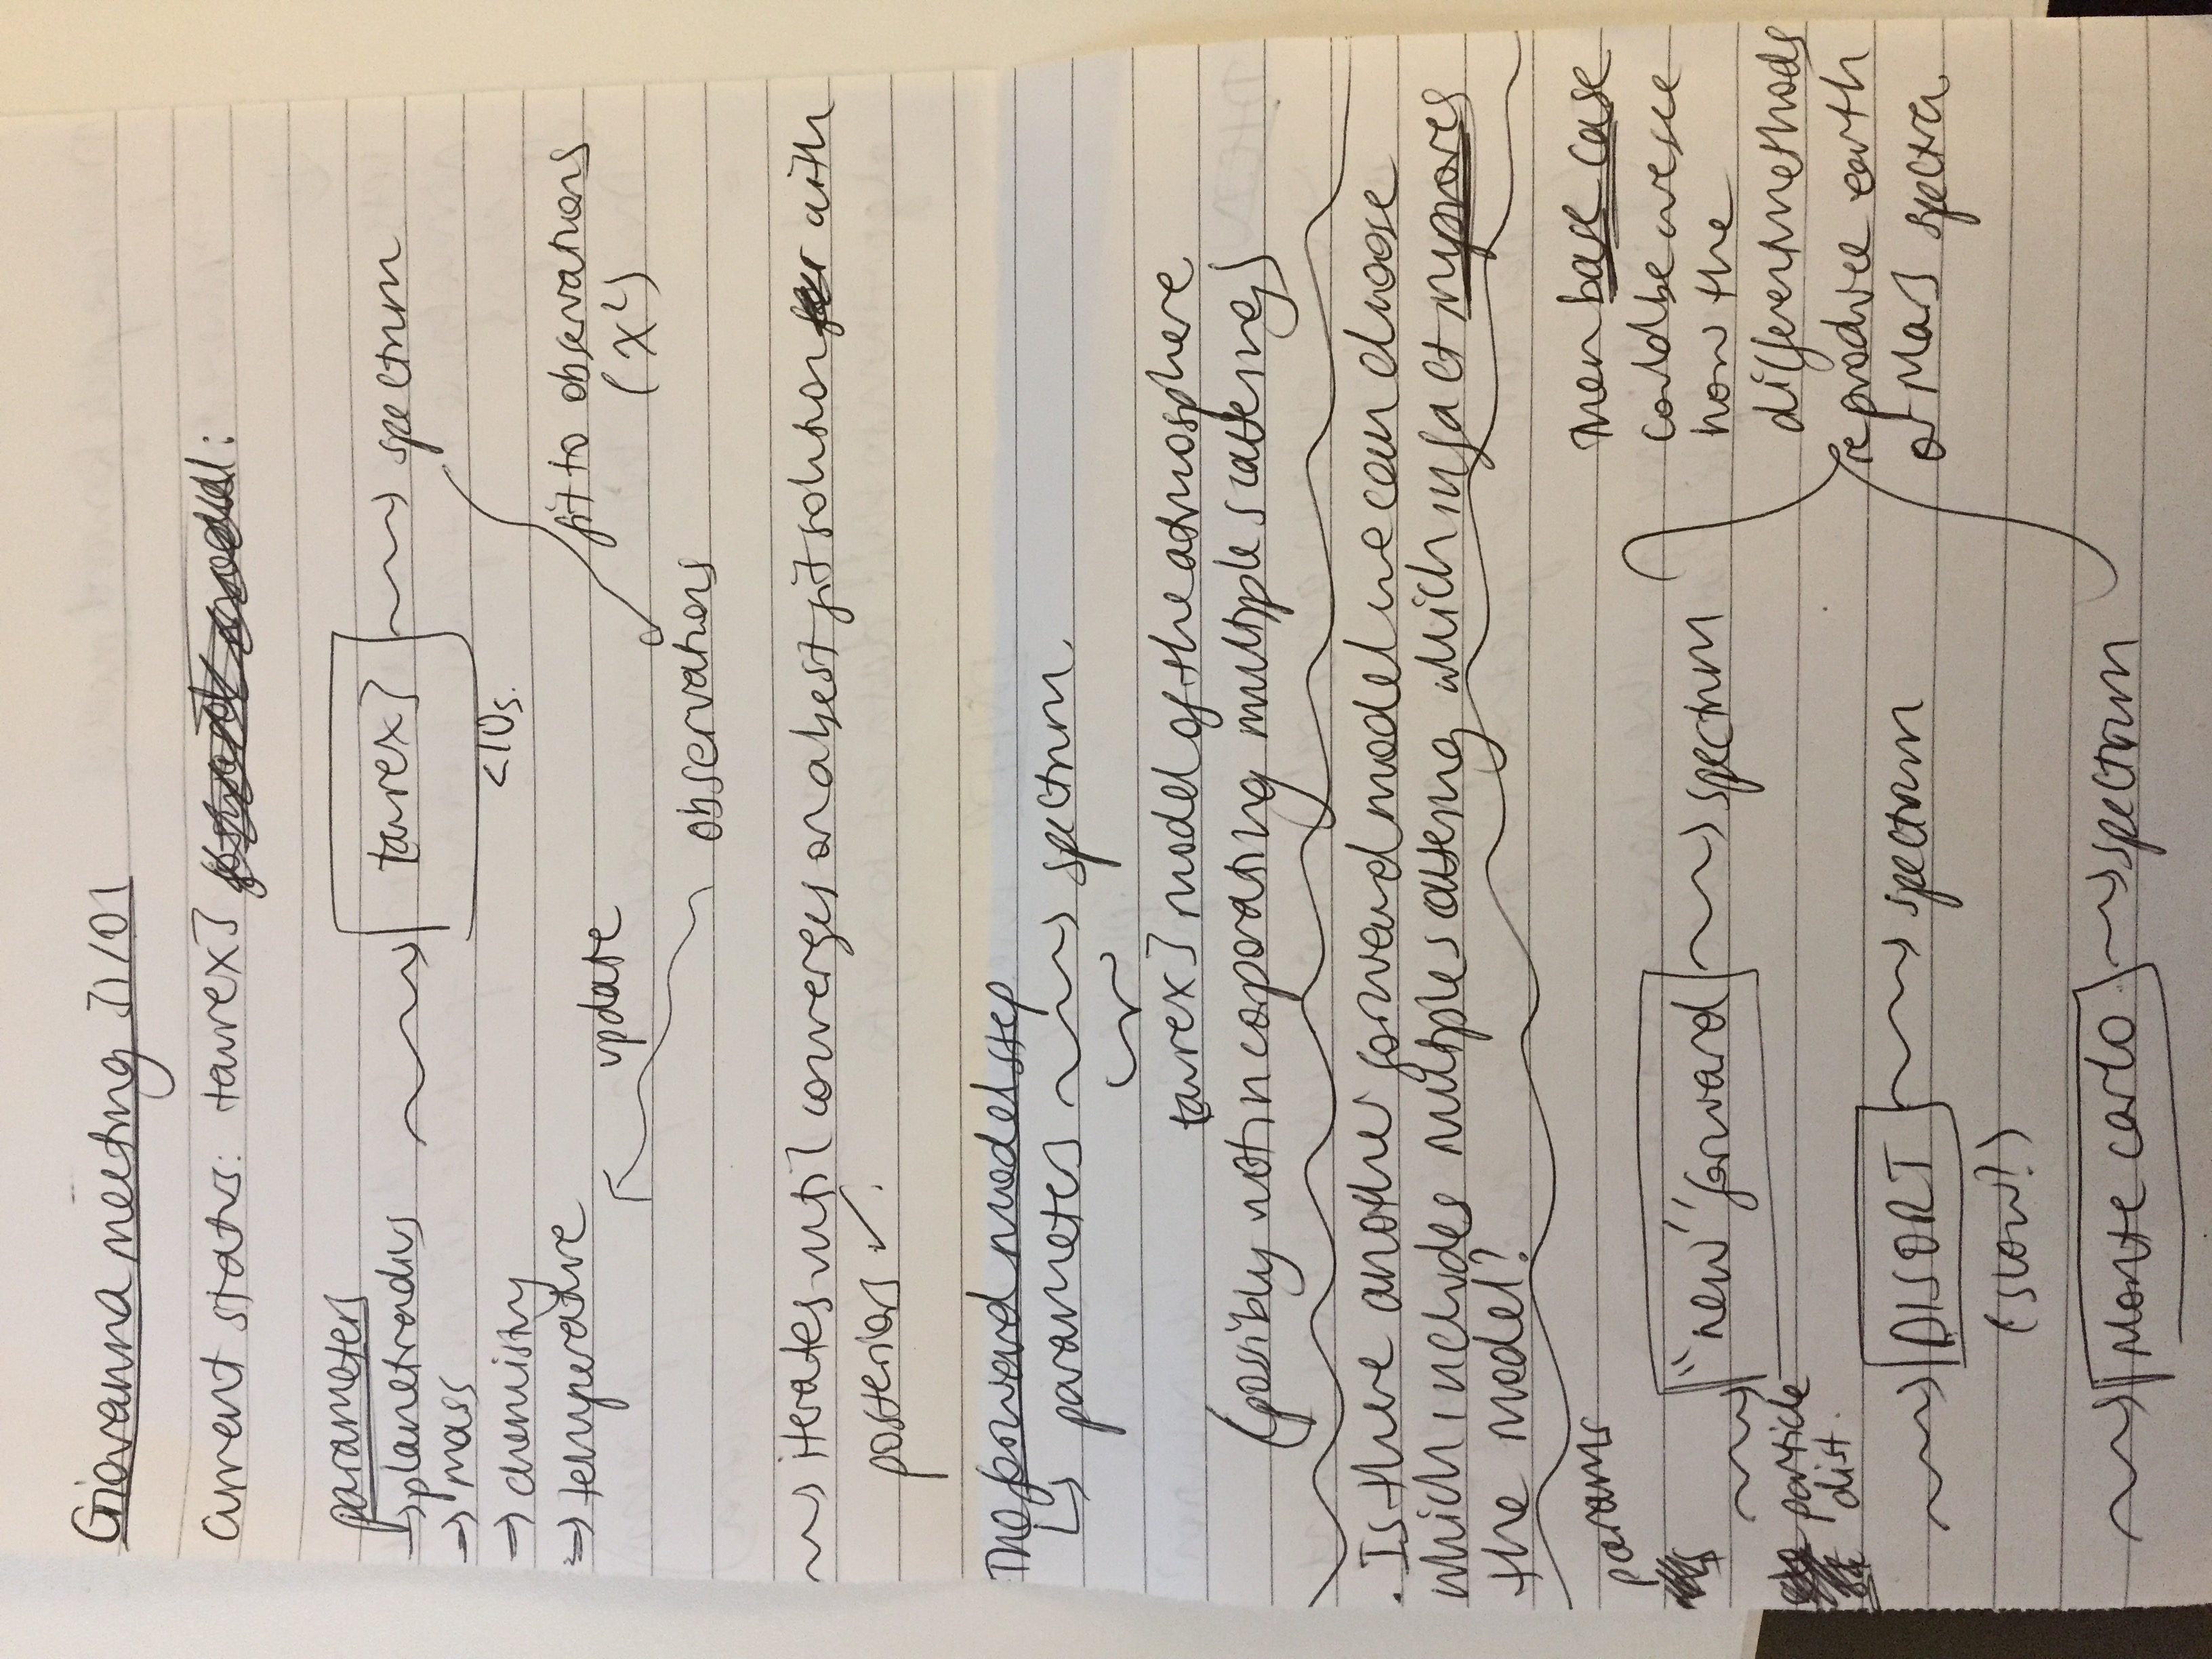 Giovanna meeting 7/01
current status: taurex3
parameters
→ planet radius
taurex3
spectrum
⇒ mass
⇒ chemistry
<10s.
⇒ temperature
update
fit to observations
(χ²)
observations
iterates until converges on a best fit solution with
posteriors ✓.
The forward model step
↳ parameters → spectrum.
taurex3 model of the atmosphere
(possibly not incoporating multiple scattering)
. Is there another forward model we can choose
which includes multiple scattering which infact improves
the model?
params
"new" forward
spectrum
particle
dist.
DISORT
spectrum
(slow!)
Monte carlo
spectrum
Then base case
could be we see
how the
different methods
reproduce earth
or Mars spectra